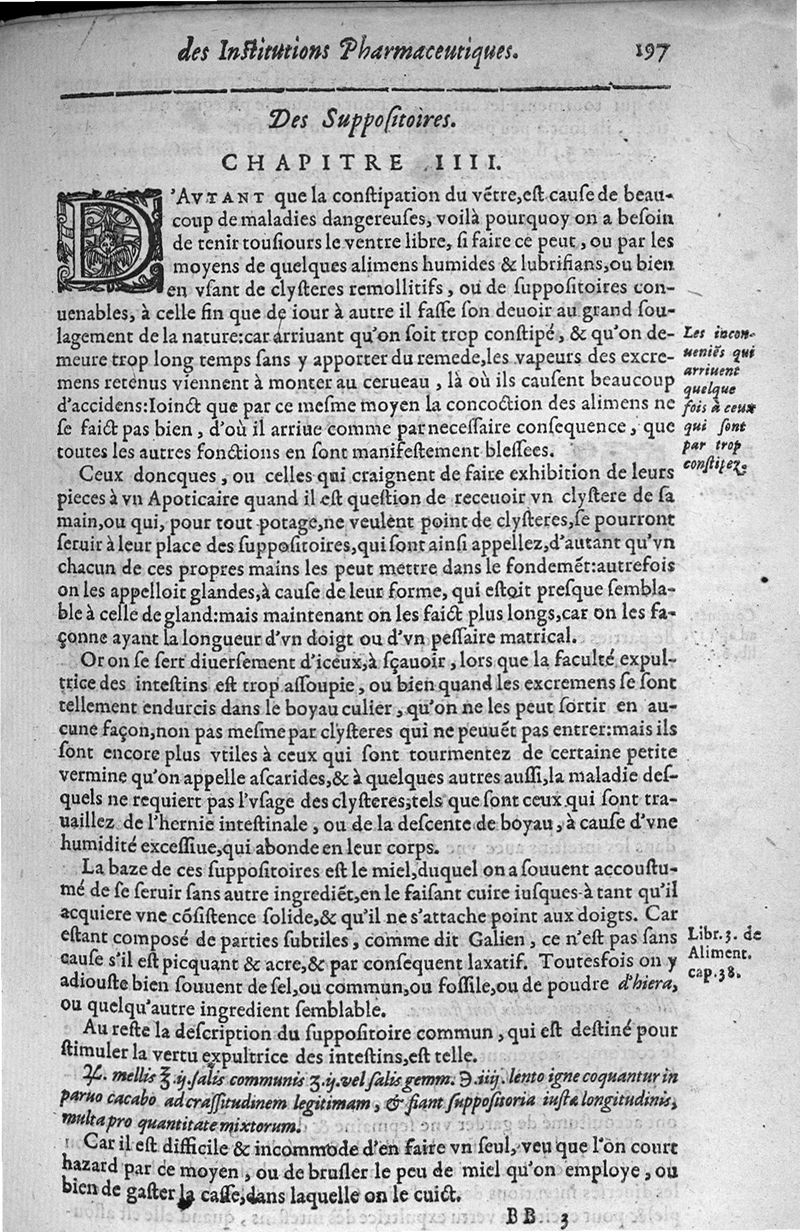 des Institutions Pharmaceutiques. 197
Des Suppositoires.
CHAPITRE IIII.
D'AVTANT que la constipation du vẽtre, est cause de beau-
coup de maladies dangereuses, voilà pourquoy on a besoin
de tenir tousiours le ventre libre, si faire ce peut, ou par les
moyens de quelques alimens humides & lubrifians, ou bien
en vsant de clysteres remollitifs, ou de suppositoires con-
uenables, à celle fin que de iour à autre il fasse son deuoir au grand sou-
lagement de la nature: car arriuant qu'on soit trop constipé, & qu'on de-
meure trop long temps sans y apporter du remede, les vapeurs des excre-
mens retenus viennent à monter au cerueau, là où ils causent beaucoup
d'accidens: Ioinct que par ce mesme moyen la concoction des alimens ne
se faict pas bien, d'où il arriue comme par necessaire consequence, que
toutes les autres fonctions en sont manifestement blessees.
Les incon-
ueniẽs qui
arriuent
quelque
fois à ceux
qui sont
par trop
constipez.
Ceux doncques, ou celles qui craignent de faire exhibition de leurs
pieces à vn Apoticaire quand il est question de receuoir vn clystere de sa
main, ou qui, pour tout potage, ne veulent point de clysteres, se pourront
seruir à leur place des suppositoires, qui sont ainsi appellez, d'autant qu'vn
chacun de ces propres mains les peut mettre dans le fondemẽt: autrefois
on les appelloit glandes, à cause de leur forme, qui estoit presque sembla-
ble à celle de gland: mais maintenant on les faict plus longs, car on les fa-
çonne ayant la longueur d'vn doigt ou d'vn pessaire matrical.
Or on se sert diuersement d'iceux, à sçauoir, lors que la faculté expul-
trice des intestins est trop assoupie, ou bien quand les excremens se sont
tellement endurcis dans le boyau culier, qu'on ne les peut sortir en au-
cune façon, non pas mesme par clysteres qui ne peuuẽt pas entrer: mais ils
sont encore plus vtiles à ceux qui sont tourmentez de certaine petite
vermine qu'on appelle ascarides, & à quelques autres aussi, la maladie des-
quels ne requiert pas l'vsage des clysteres, tels que sont ceux qui sont tra-
uaillez de l'hernie intestinale, ou de la descente de boyau, à cause d'vne
humidité excessiue, qui abonde en leur corps.
La baze de ces suppositoires est le miel, duquel on a souuent accoustu-
mé de se seruir sans autre ingrediẽt, en le faisant cuire iusques à tant qu'il
acquiere vne cõsistence solide, & qu'il ne s'attache point aux doigts. Car
estant composé de parties subtiles, comme dit Galien, ce n'est pas sans
cause s'il est picquant & acre, & par consequent laxatif. Toutesfois on y
adiouste bien souuent de sel, ou commun, ou fossile, ou de poudre d'hiera,
ou quelqu'autre ingredient semblable.
Libr. 3. de
Aliment.
cap. 38.
Au reste la description du suppositoire commun, qui est destiné pour
stimuler la vertu expultrice des intestins, est telle.
℞. mellis ℥. ij. salis communis ʒ. ij. vel salis gemm. ℈. iiij. lento igne coquantur in
paruo cacabo ad crassitudinem legitimam, & fiant suppositoria iusta longitudinis,
multa pro quantitate mixtorum.
Car il est difficile & incommode d'en faire vn seul, veu que l'on court
hazard par ce moyen, ou de brusler le peu de miel qu'on employe, ou
bien de gaster la casse, dans laquelle on le cuict.
BB 3